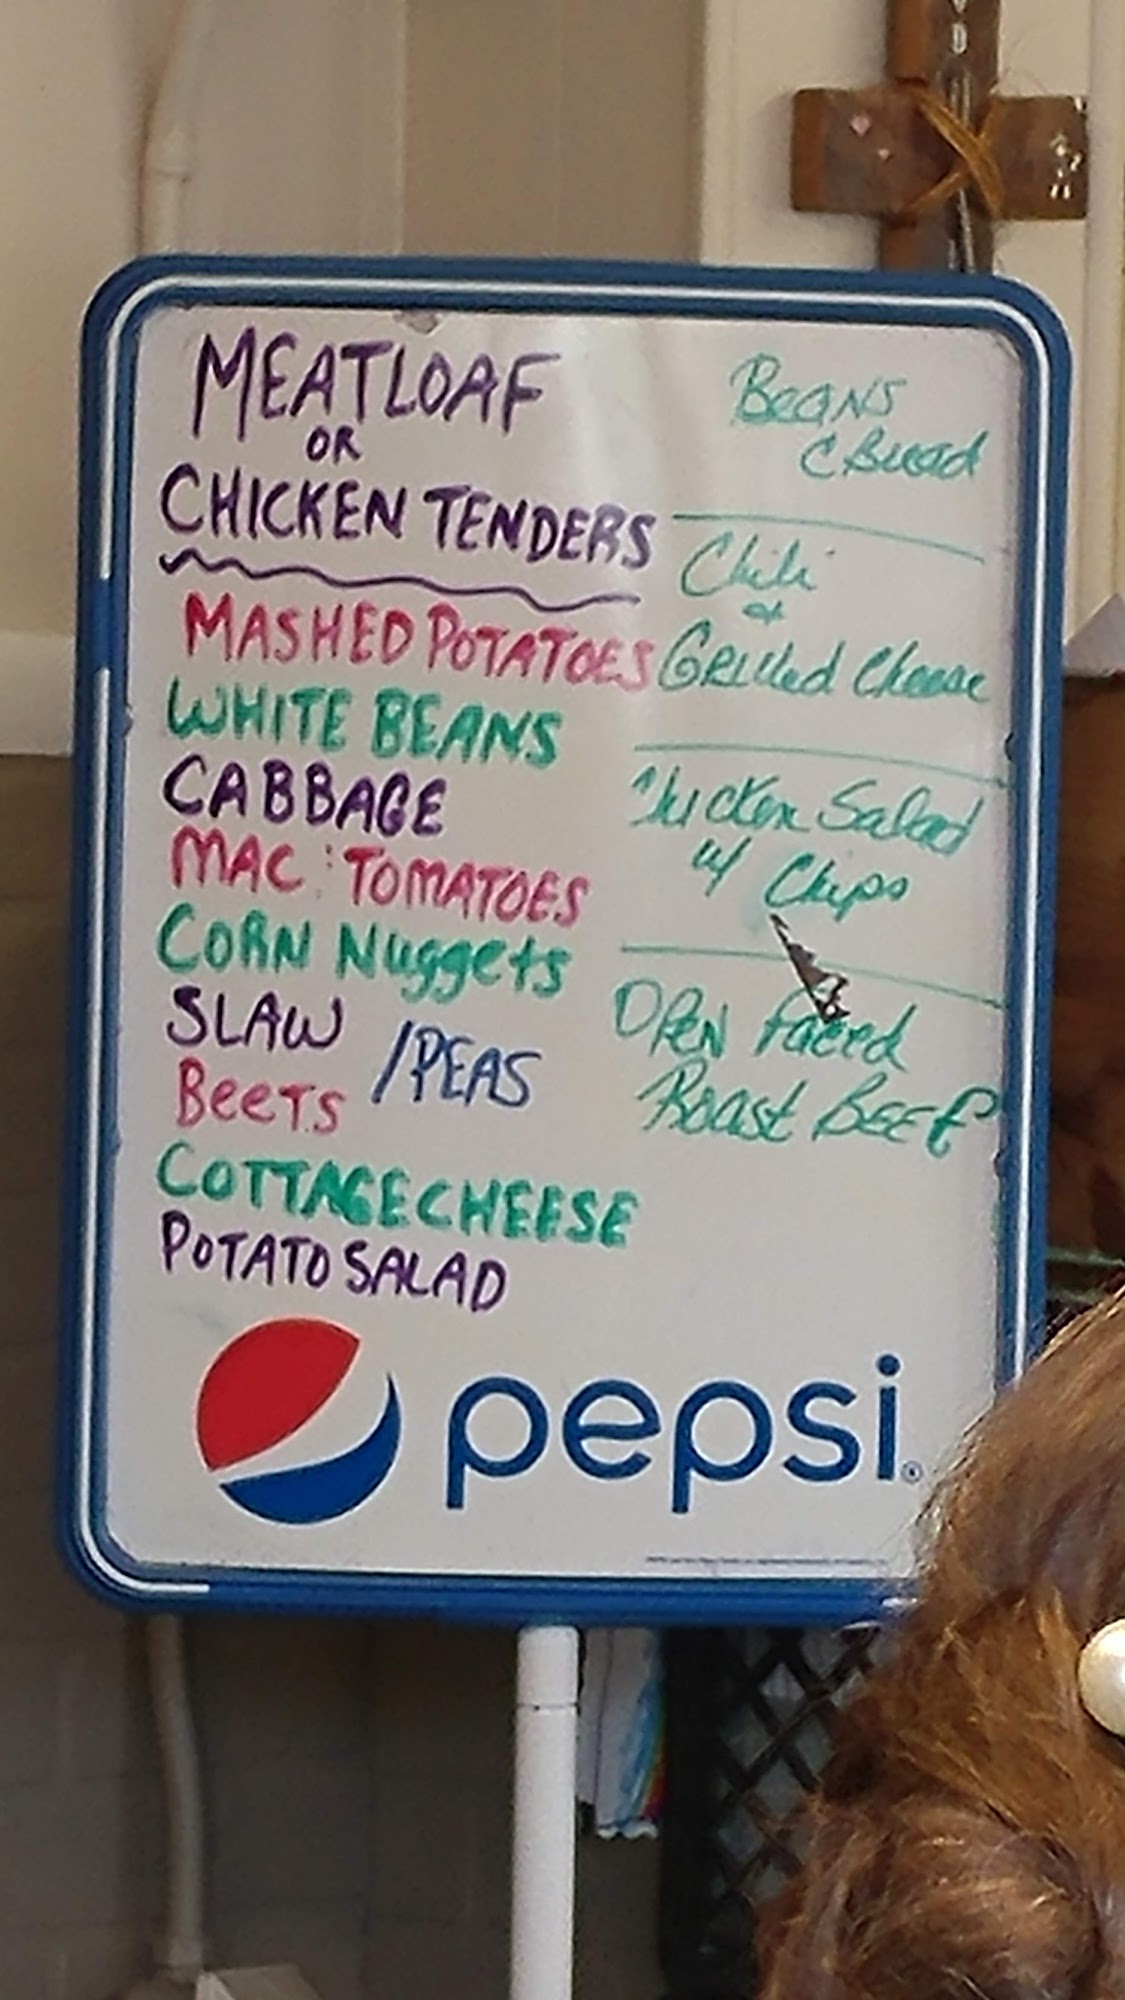 MEATLOAF
OR
CHICKEN TENDERS
MASHED POTATOES
WHITE BEANS
CABBAGE
MAC : TOMATOES
CORN Nuggets
SLAW
/PEAS
BeeTS
COTTAGE CHEESE
POTATO SALAD
BeaNS
C Bread
Chili
&
Grilled Cheese
Chicken Salad
w/ Chips
OPEN Faced
Roast BEEF
pepsi®